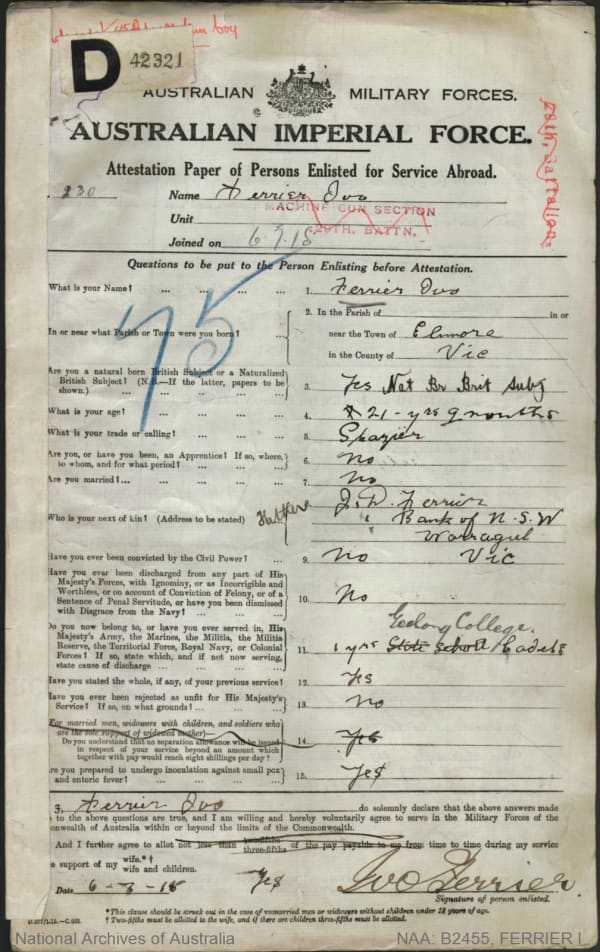 D 42321
AUSTRALIAN MILITARY FORCES.
AUSTRALIAN IMPERIAL FORCE.
Attestation Paper of Persons Enlisted for Service Abroad.
230 Name Ferrier Ivo
MACHINE GUN SECTION
Unit
29TH. BATTN.
29th. Battalion.
Joined on 6.7.15
75
Questions to be put to the Person Enlisting before Attestation.
What is your Name? ... ... ... ... 1. Ferrier Ivo
2. In the Parish of in or
In or near what Parish or Town were you born? ... near the Town of Elmore
in the County of Vic
Are you a natural born British Subject or a Naturalized
British Subject? (N.B.—If the latter, papers to be
shown.) ... ... ... ... ... 3. Yes Nat Br Brit Subj
What is your age? ... ... ... ... 4. 21 - yrs 9 months
What is your trade or calling? ... ... ... 5. Grazier
Are you, or have you been, an Apprentice? If so, where,
to whom, and for what period? ... ... ... 6. No
Are you married?... ... ... ... ... 7. No
Father J. D. Ferrier
Who is your next of kin? (Address to be stated) " Bank of N.S.W
Warragul
Have you ever been convicted by the Civil Power? ... 9. No Vic
Have you ever been discharged from any part of His
Majesty's Forces, with Ignominy, or as Incorrigible and
Worthless, or on account of Conviction of Felony, or of a
Sentence of Penal Servitude, or have you been dismissed
with Disgrace from the Navy? ... ... 10. No
Geelong College.
Do you now belong to, or have you ever served in, His
Majesty's Army, the Marines, the Militia, the Militia
Reserve, the Territorial Force, Royal Navy, or Colonial
Forces? If so, state which, and if not now serving,
state cause of discharge ... ... ... 11. 1 yrs State School Cadets
Have you stated the whole, if any, of your previous service? 12. Yes
Have you ever been rejected as unfit for His Majesty's
Service? If so, on what grounds? ... ... ... 13. No
For married men, widowers with children, and soldiers who
are the sole support of widowed mother)—
Do you understand that no separation allowance will be issued
in respect of your service beyond an amount which
together with pay would reach eight shillings per day? 14. Yes
Are you prepared to undergo inoculation against small pox
and enteric fever? ... ... ... ... 15. Yes
I, Ferrier Ivo do solemnly declare that the above answers made
to the above questions are true, and I am willing and hereby voluntarily agree to serve in the Military Forces of the
Commonwealth of Australia within or beyond the limits of the Commonwealth.
And I further agree to allot not less than two-fifths three-fifths of the pay payable to me from time to time during my service
support of my wife.*† wife and children.
Date 6-7-15 Yes Ivo Ferrier.
Signature of person enlisted.
*This clause should be struck out in the case of unmarried men or widowers without children under 18 years of age.
†Two-fifths must be allotted to the wife, and if there are children three-fifths must be allotted.
National Archives of Australia NAA: B2455, FERRIER I